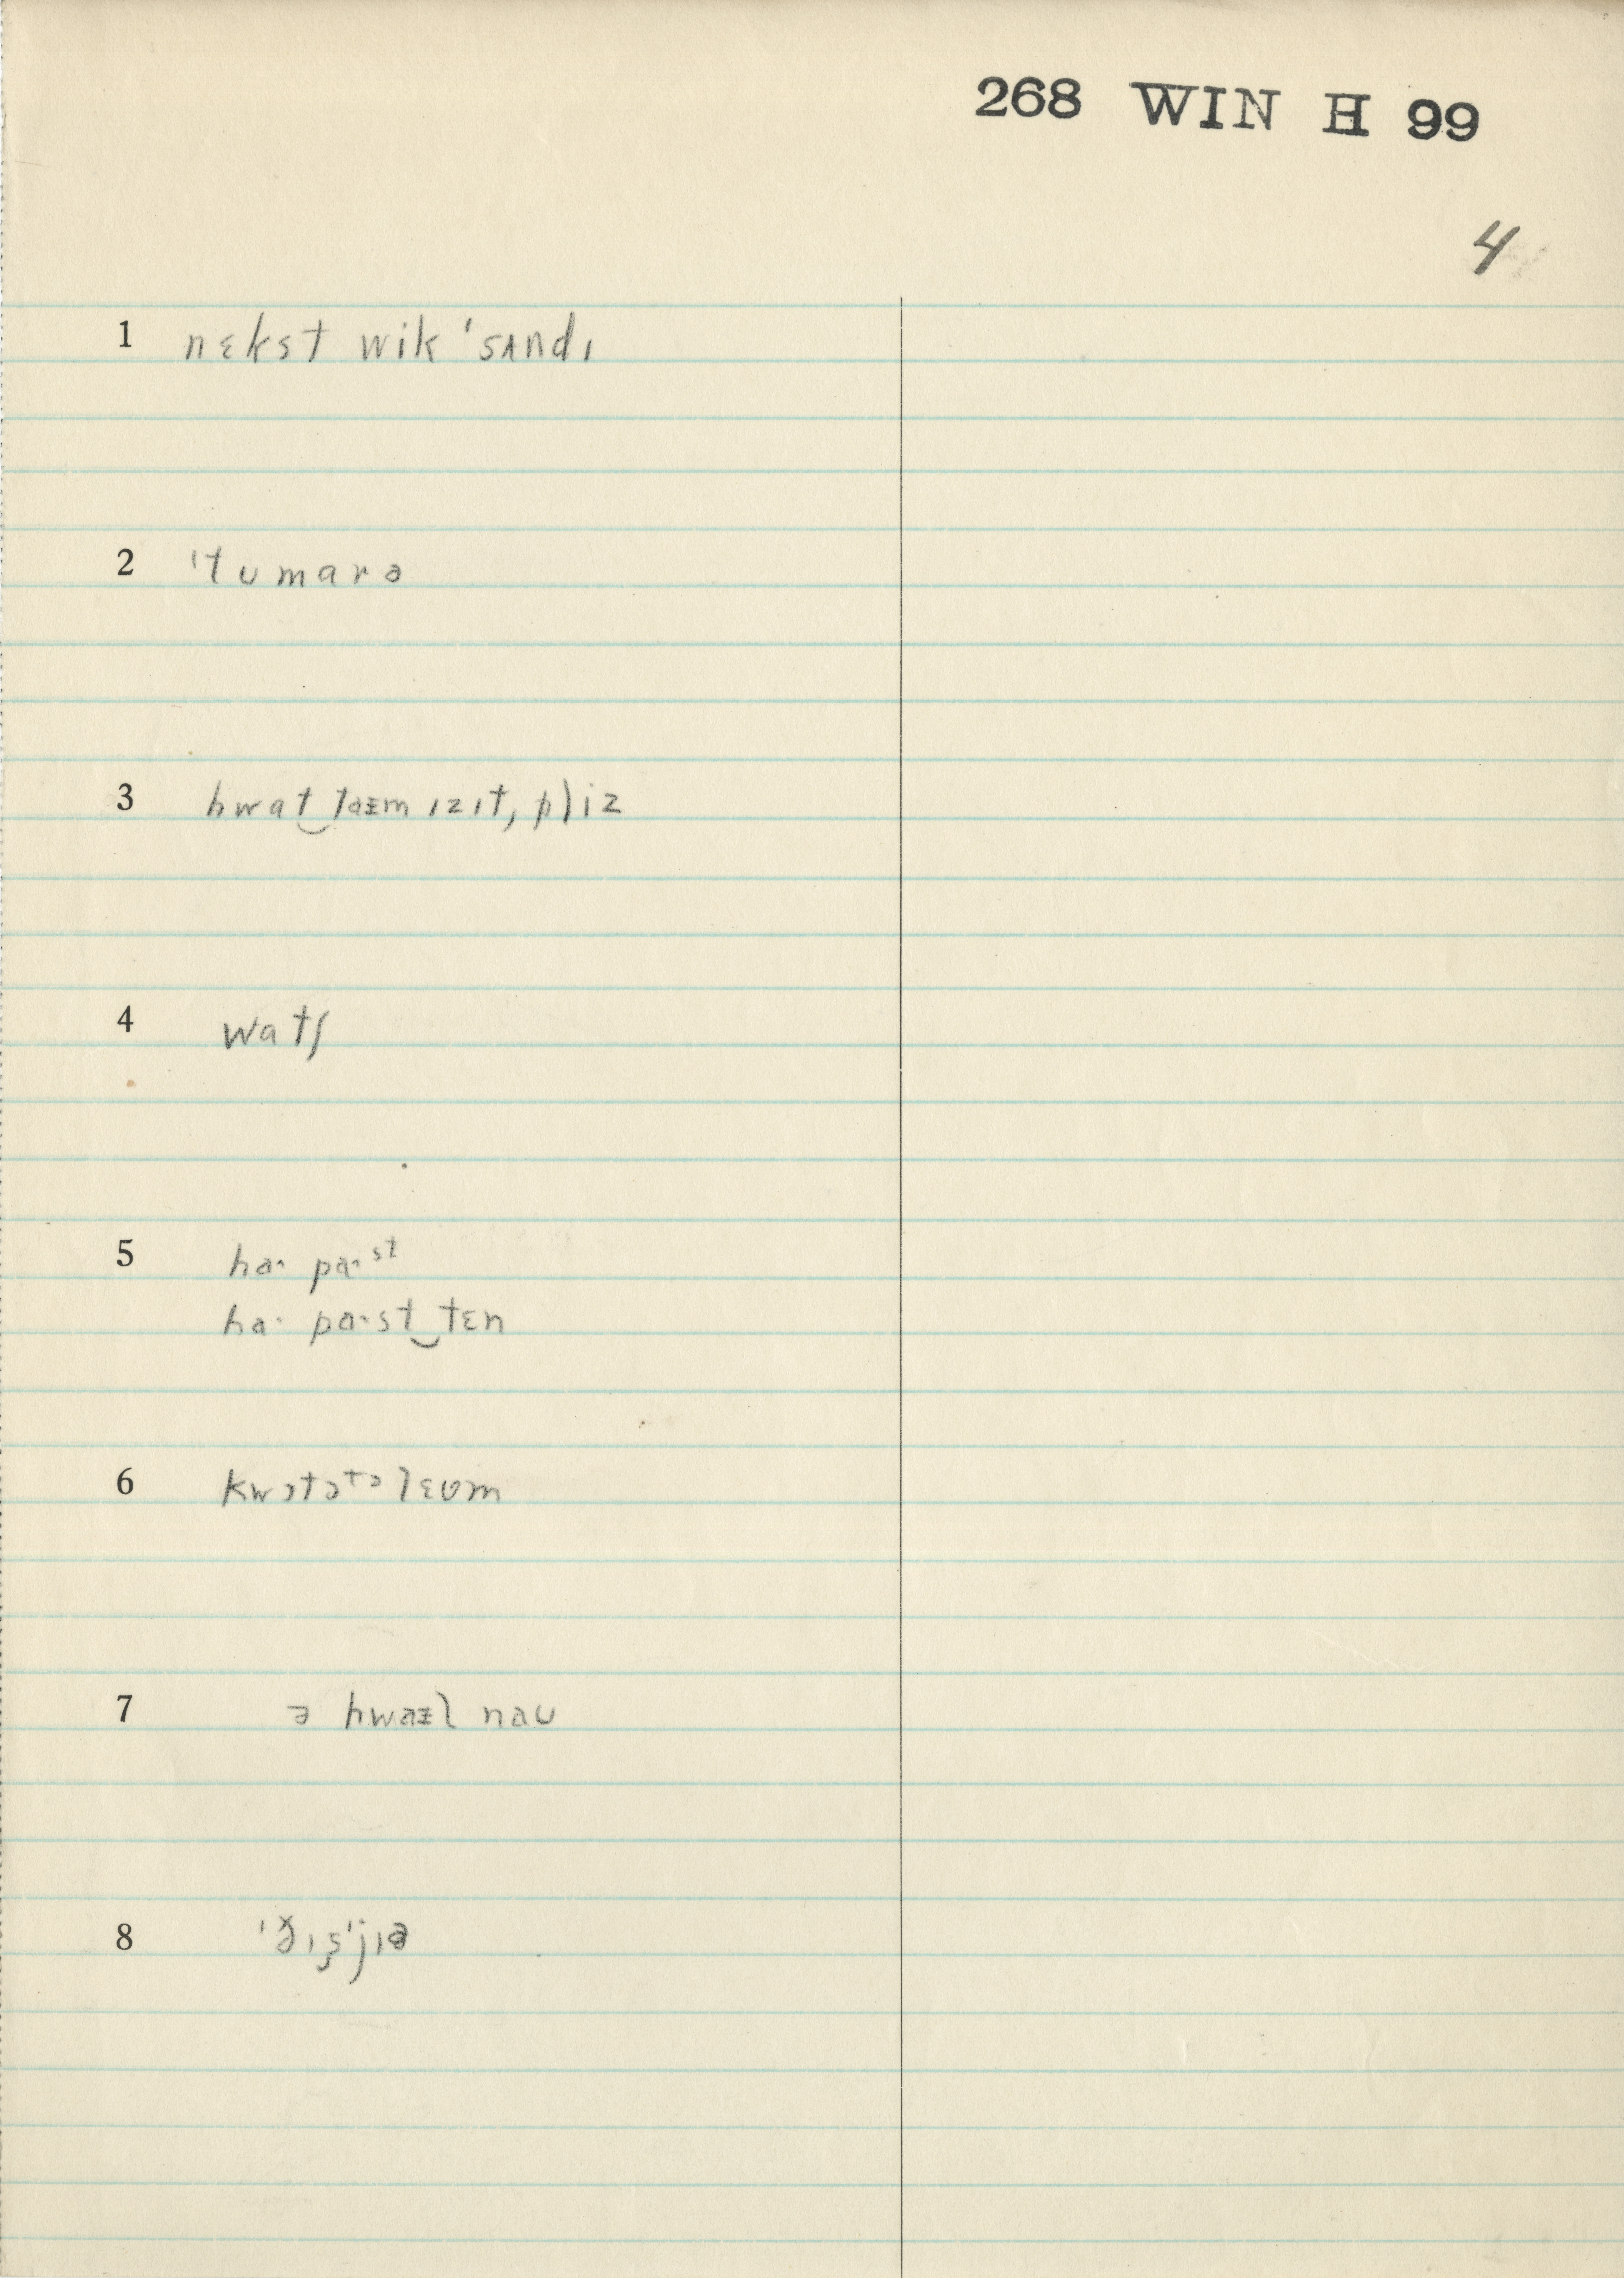 268 WIN H 99
4
1 nɛkst wik 'sʌndɪ
2 'tʊmarə
3 hwat‿taᵻm ɪzɪt, pliz
4 watʃ
5 ha· pa·ˢᵗ
ha· pa·st‿tɛn
6 kwɔtəᵗᵊlɛʊm
7 ə hwaᵻl naʊ
8 'ðɪş'jɪə